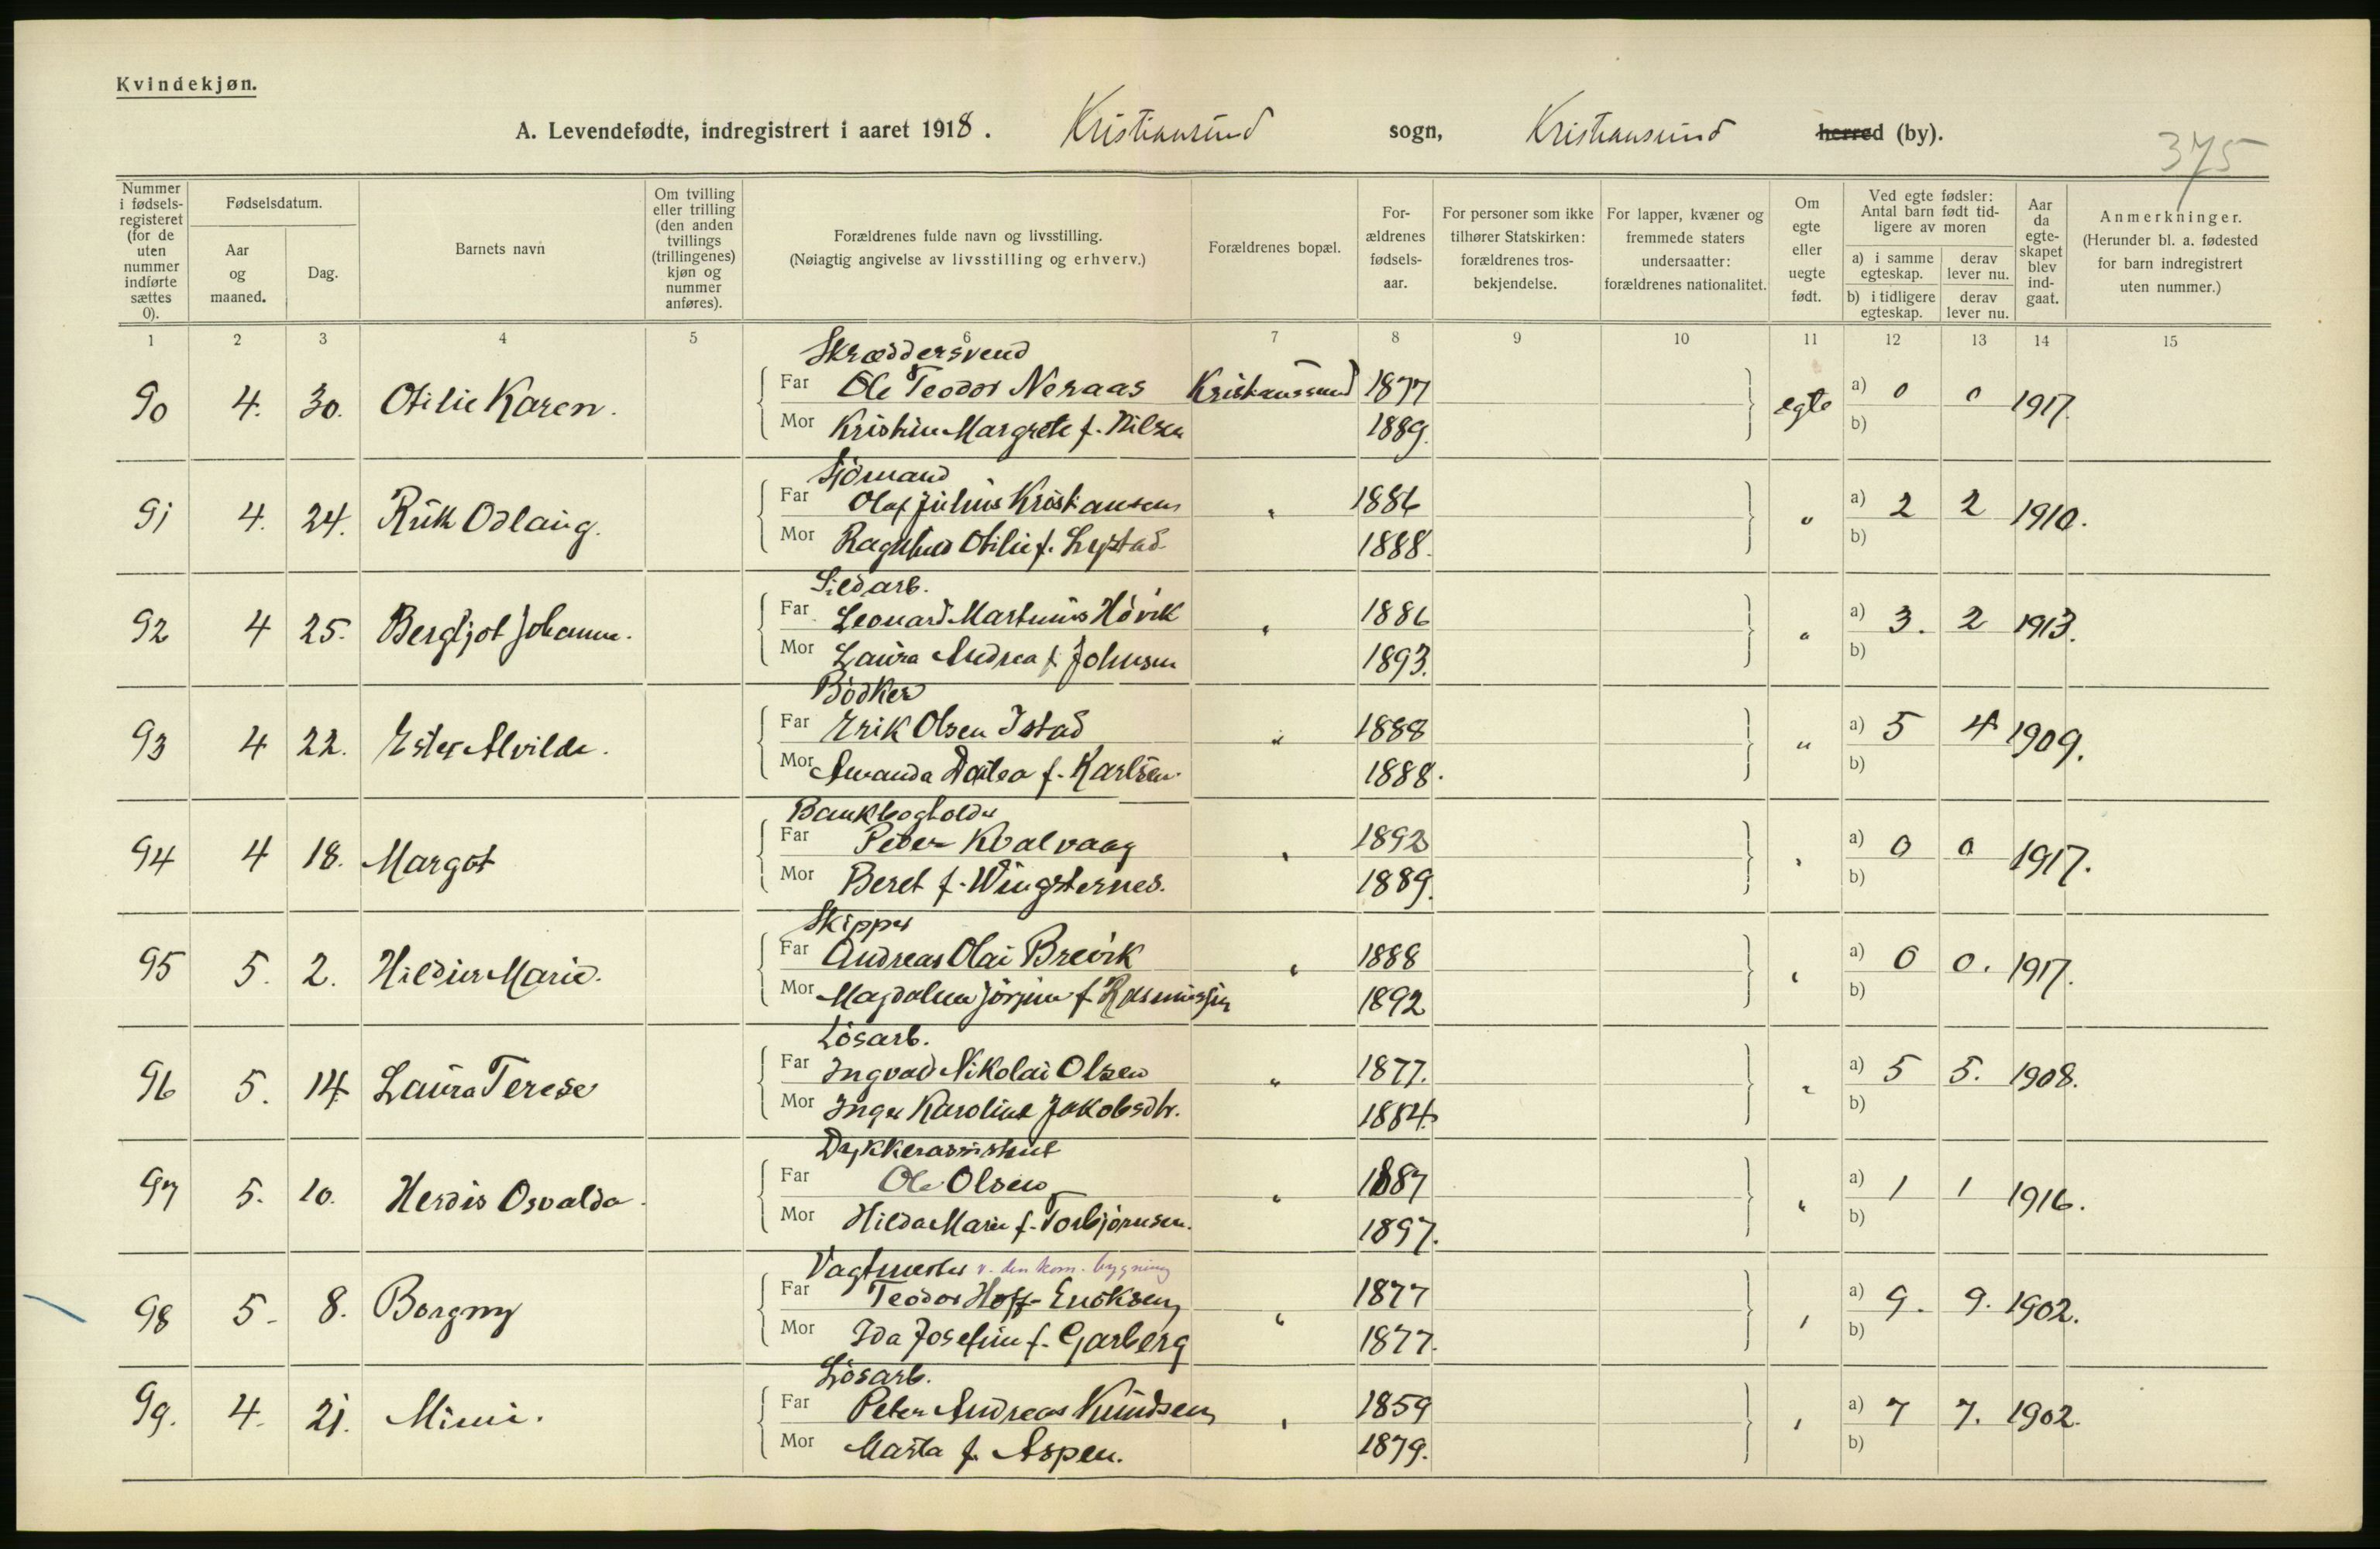 Kvindekjøn.
A. Levendefødte, indregistrert i aaret 1918. Kristiansund sogn, Kristiansund herred (by).
375
Nummer i fødselsregisteret (for de uten nummer indførte sættes 0).
Fødselsdatum.
Aar og maaned.
Dag.
Barnets navn
Om tvilling eller trilling (den anden tvillings (trillingenes) kjøn og nummer anføres).
Forældrenes fulde navn og livsstilling.
(Nøiagtig angivelse av livsstilling og erhverv.)
Forældrenes bopæl.
Forældrenes fødselsaar.
For personer som ikke tilhører Statskirken: forældrenes trosbekjendelse.
For lapper, kvæner og fremmede staters undersaatter: forældrenes nationalitet.
Om egte eller uegte født.
Ved egte fødsler: Antal barn født tidligere av moren
a) i samme egteskap. derav lever nu.
b) i tidligere egteskap. derav lever nu.
Aar da egteskapet blev indgaat.
Anmerkninger.
(Herunder bl. a. fødested for barn indregistrert uten nummer.)
1 2 3 4 5 6 7 8 9 10 11 12 13 14 15
Skræddersvend
90 4. 30. Otilie Karen. Far Ole Teodor Neraas Kristiansund 1877 egte a) 0 0 1917.
Mor Kristine Margrete f. Nilsen 1889. b)
Sjömand
91 4. 24. Ruth Odlaug. Far Olaf Julius Kristiansen " 1886 " a) 2 2 1910.
Mor Ragnhild Otilie f. Lystad 1888. b)
Sildarb.
92 4 25. Bergljot Johanne. Far Leonard Martinius Hövik " 1886 " a) 3. 2 1913.
Mor Laura Andrea f. Johnsen 1893. b)
Bödker
93 4 22. Ester Alvilde. Far Erik Olsen Istad " 1888 " a) 5 4 1909.
Mor Amanda Dortea f. Karlsen. 1888. b)
Bankbogholder
94 4 18. Margot Far Peder Kvalvaag " 1892 " a) 0 0 1917.
Mor Beret f. Wingsternes. 1889. b)
Skipper
95 5. 2. Hildur Marie. Far Andreas Olai Brevik " 1888 " a) 0 0. 1917.
Mor Magdalena Jörgine f. Rasmussen 1892 b)
Lösarb.
96 5. 14 Laura Terese Far Ingvad Nikolai Olsen " 1877. " a) 5 5. 1908.
Mor Inger Karoline Jakobsdtr. 1884. b)
Dykkerassistent
97 5. 10. Herdis Osvalda. Far Ole Olsen " 1887 " a) 1 1 1916.
Mor Hilda Marie f. Torbjörnsen. 1897. b)
Vagtmester v. den kom. bygning
98 5. 8. Borgny Far Teodor Hoff-Eriksen " 1877 " a) 9. 9. 1902.
Mor Ida Josefine f. Garberg 1877. b)
Lösarb.
99. 4. 21. Mimi. Far Peter Andreas Knudsen " 1859 " a) 7 7. 1902.
Mor Marta f. Aspen. 1879. b)